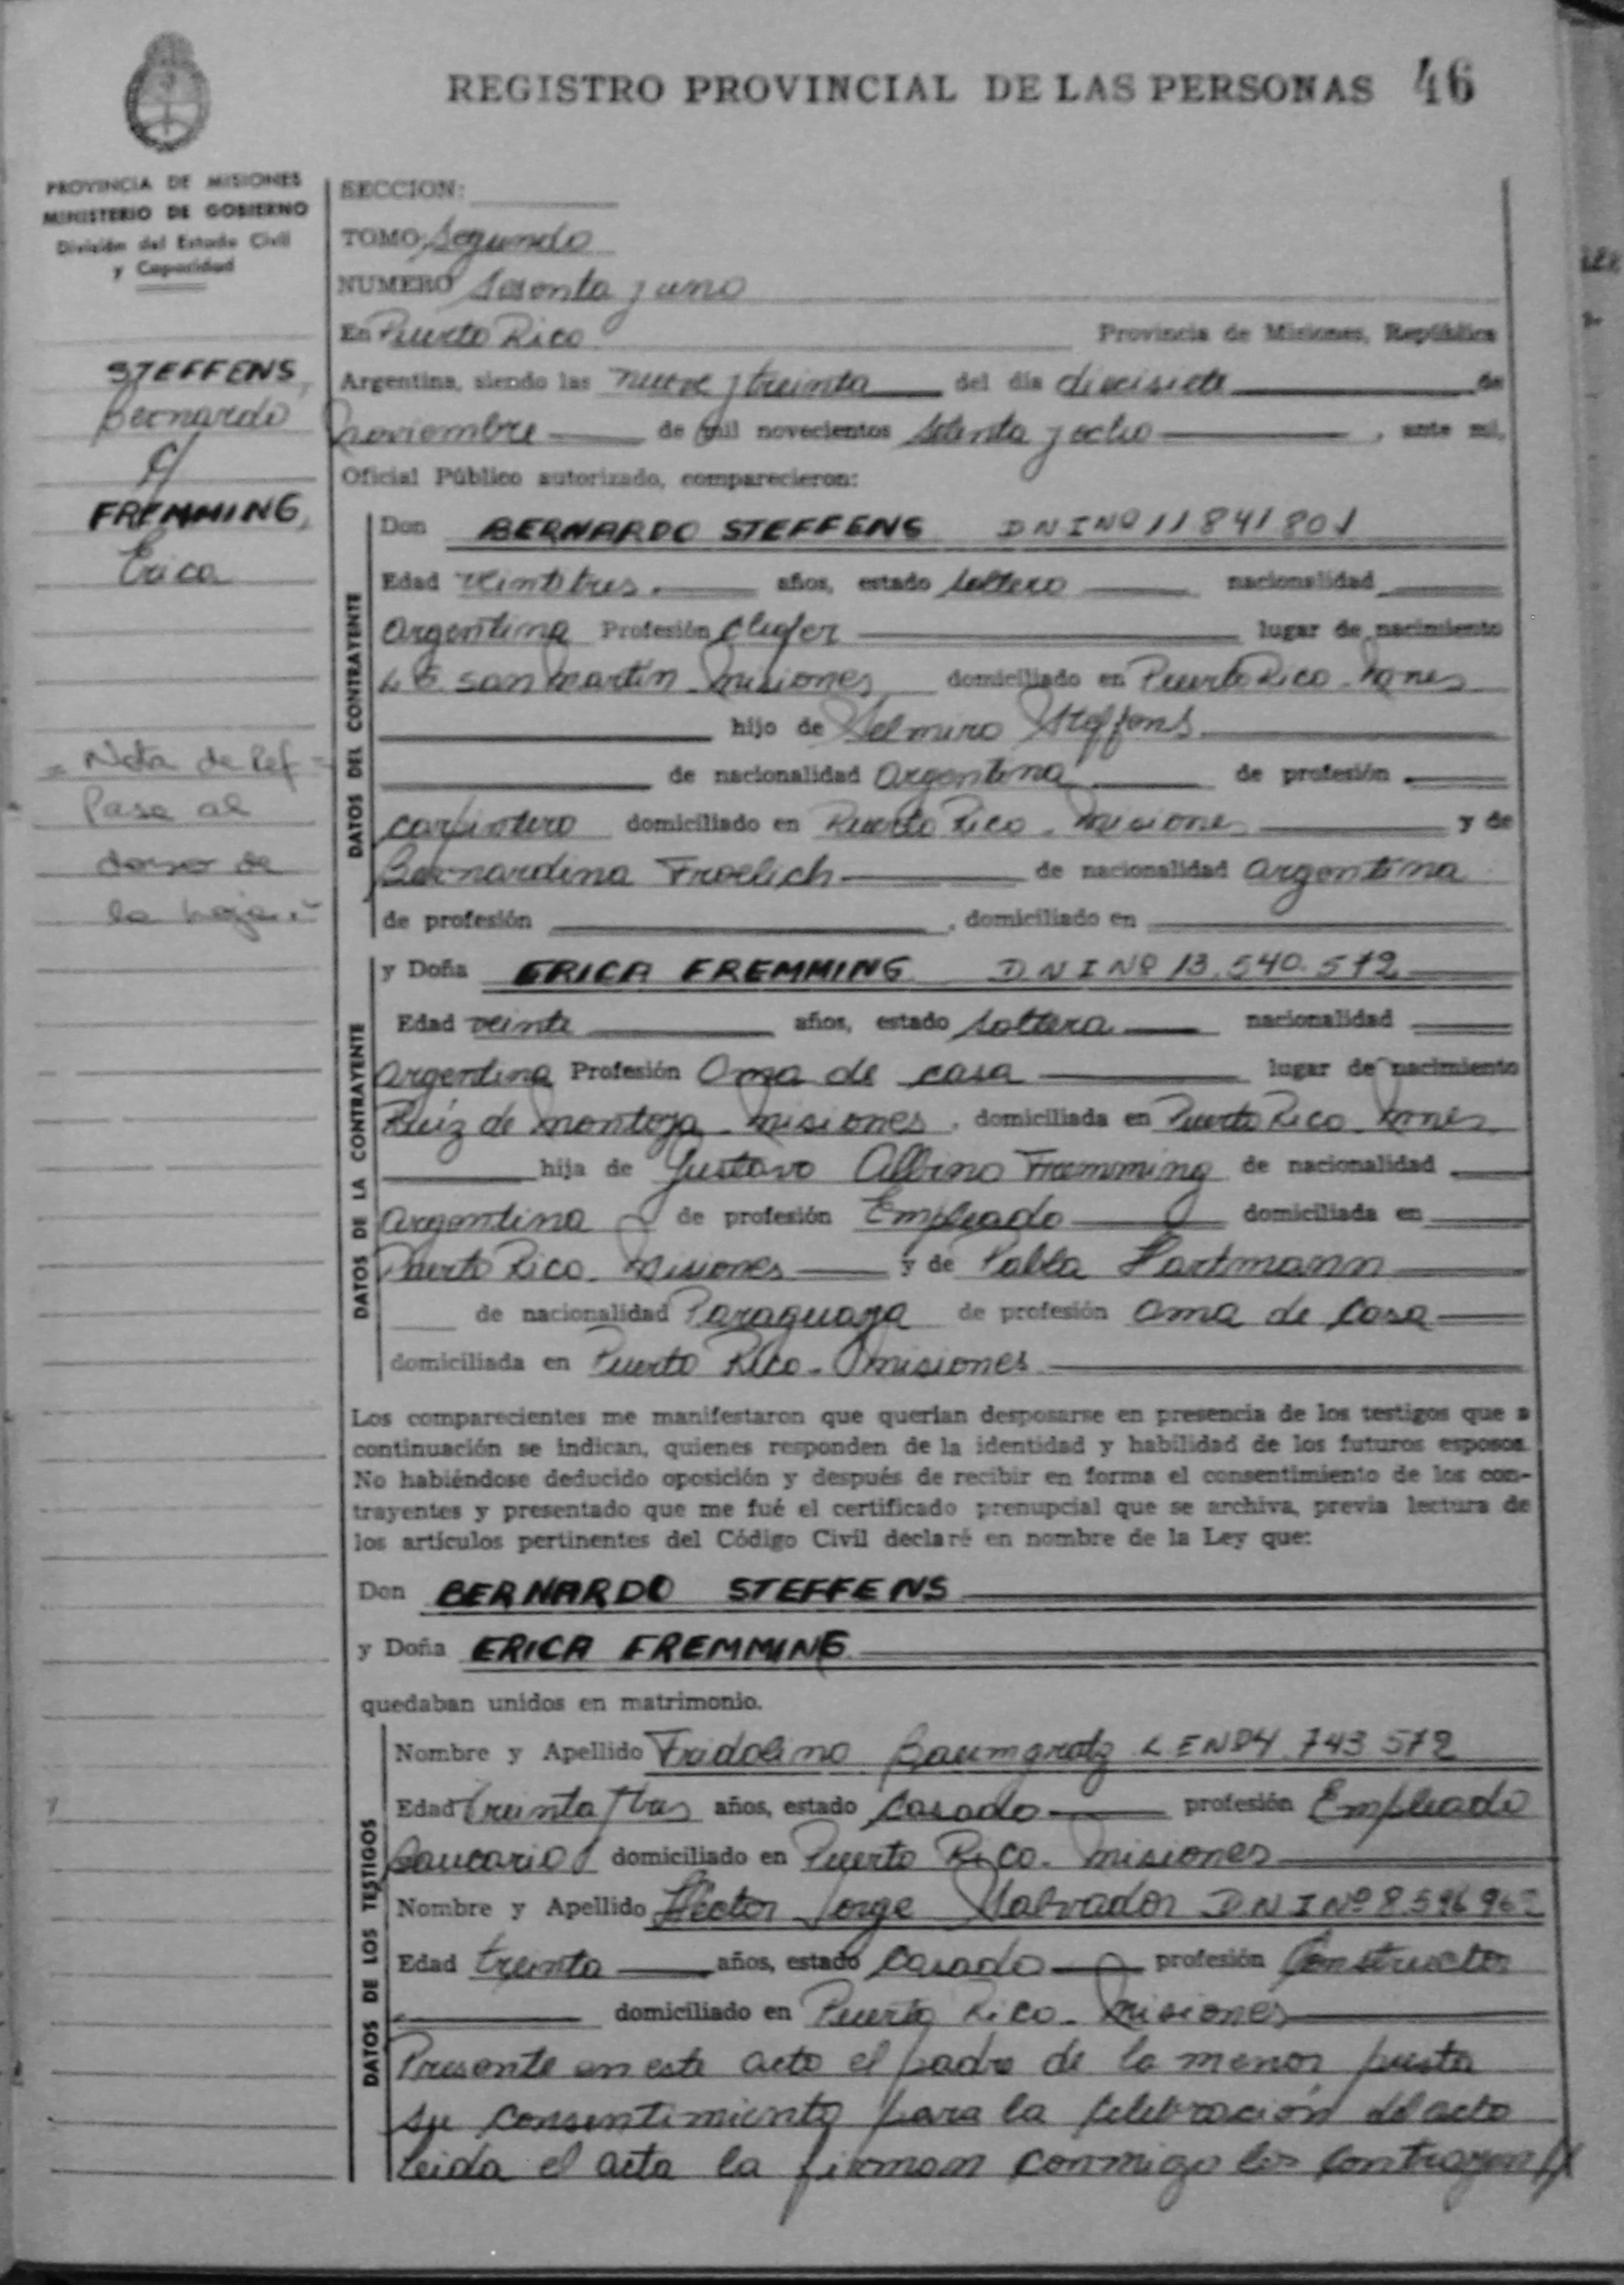 REGISTRO PROVINCIAL DE LAS PERSONAS 46
PROVINCIA DE MISIONES
MINISTERIO DE GOBIERNO
División del Estado Civil
y Capacidad
STEFFENS,
Bernardo
c/
FREMMING,
Erica
= Nota de Ref =
Pasa al
dorso de
la hoja.-
SECCION:
TOMO Segundo
NUMERO Sesenta y uno
En Puerto Rico Provincia de Misiones, República
Argentina, siendo las nueve y treinta del día diecisiete de
noviembre de mil novecientos setenta y ocho, ante mi,
Oficial Público autorizado, comparecieron:
DATOS DEL CONTRAYENTE
Don BERNARDO STEFFENS DNI Nº 11841801
Edad veintitres años, estado soltero nacionalidad
argentina Profesión Chofer lugar de nacimiento
L G San Martín Misiones domiciliado en Puerto Rico Mnes
hijo de Selmiro Steffens
de nacionalidad argentina de profesión
carpintero domiciliado en Puerto Rico - Misiones y de
Bernardina Froelich de nacionalidad argentina
de profesión , domiciliado en
DATOS DE LA CONTRAYENTE
y Doña ERICA FREMMING DNI Nº 13.540.572
Edad veinte años, estado soltera nacionalidad
argentina Profesión Ama de casa lugar de nacimiento
Ruiz de Montoya Misiones, domiciliada en Puerto Rico Mnes
hija de Gustavo Albino Fremming de nacionalidad
argentina de profesión Empleado domiciliada en
Puerto Rico Misiones y de Pabla Hartmann
de nacionalidad Paraguaya de profesión ama de casa
domiciliada en Puerto Rico - Misiones
Los comparecientes me manifestaron que querían desposarse en presencia de los testigos que a
continuación se indican, quienes responden de la identidad y habilidad de los futuros esposos.
No habiéndose deducido oposición y después de recibir en forma el consentimiento de los con-
trayentes y presentado que me fué el certificado prenupcial que se archiva, previa lectura de
los artículos pertinentes del Código Civil declaré en nombre de la Ley que:
Don BERNARDO STEFFENS
y Doña ERICA FREMMING
quedaban unidos en matrimonio.
DATOS DE LOS TESTIGOS
Nombre y Apellido Fridolino Baumgratz LE Nº 4 743 572
Edad treinta y tres años, estado casado profesión Empleado
bancario domiciliado en Puerto Rico - Misiones
Nombre y Apellido Héctor Jorge Salvador DNI Nº 8 596 962
Edad treinta años, estado casado profesión Constructor
domiciliado en Puerto Rico - Misiones
Presente en este acto el padre de la menor presta
su consentimiento para la celebración del acto
leida el acta la firman conmigo los contrayen//